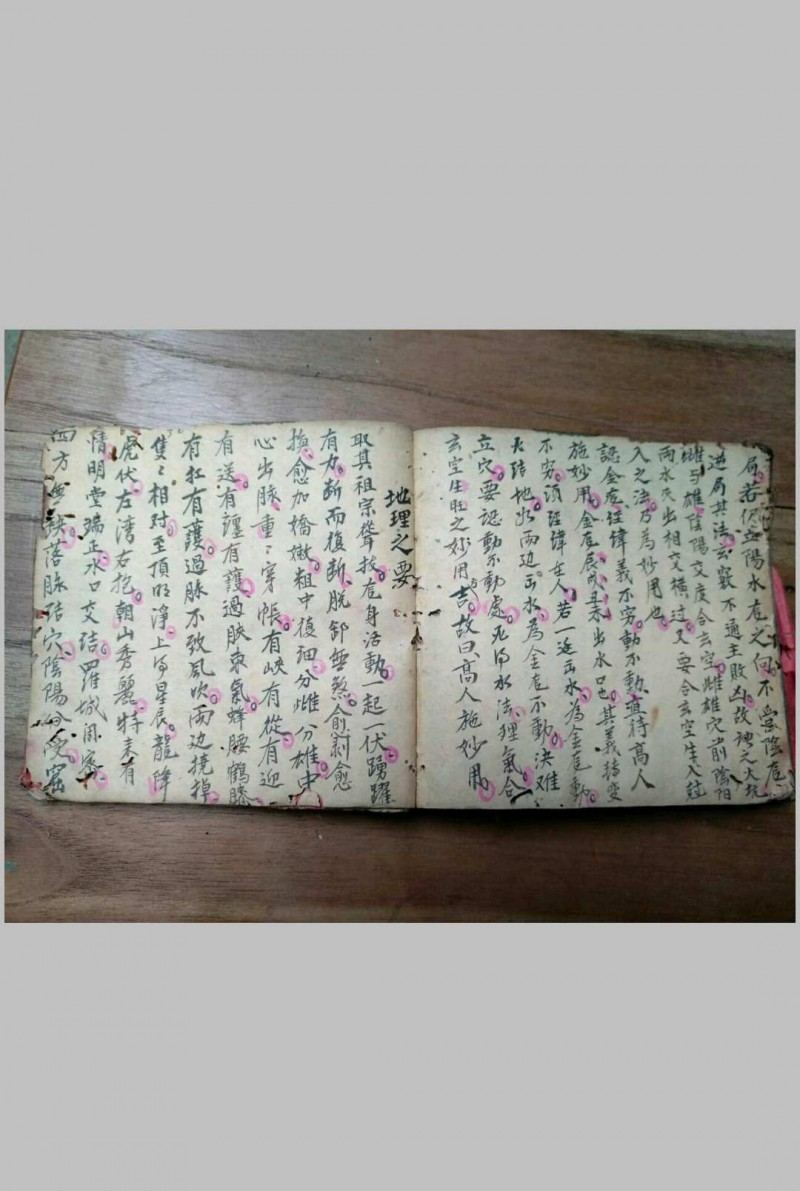 局若仍立陽水龍之向不受陰龍
逆局其法玄竅不通主敗凶故謂之大坑
雌与雄陰陽交度合玄空雌雄穴前陰陽
兩水夾出相交橫过又要合玄空生入尅
入之法乃為妙用也
認金龍經緯義不穷動不動直待高人
施妙用金龍辰戌丑未出水口也其義转变
不穷須經緯在人若一边出水為金龍動
大结地水兩边出水為金龍不動決难
立穴要認動不動處水法理氣合
玄空生旺之妙用吉故曰高人施妙用
地理之要
取其祖宗聳拔龍身活動一起一伏踴躍
有力断而復断脱卸無煞俞剥愈
換愈加嬌嫩粗中復细分雌分雄中
心出脉重〻穿帳有峽有從有迎
有送有纏有護過峽束氣蜂腰鶴膝
有扛有護過脉不致風吹兩边撓掉
隻〻相对至頂明淨上有星辰龍降
虎伏左湾右抱朝山秀麗特来有
情明堂端正水口交结羅城周密
四方無缺落脉结穴陰陽分受